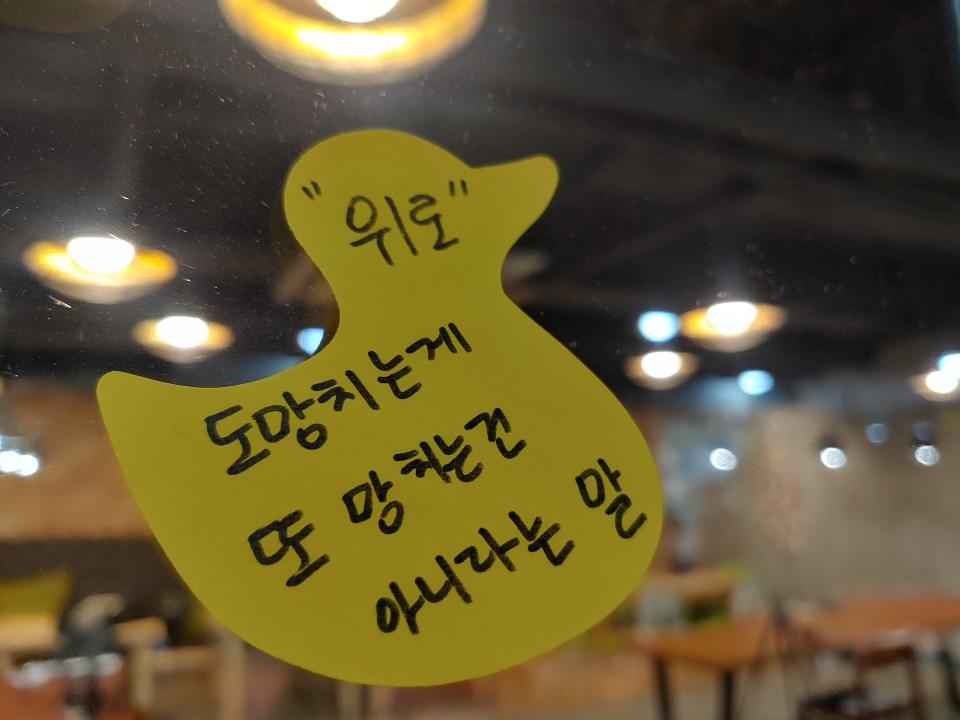 "위로"
도망치는게
또 망치는건
아니라는 말